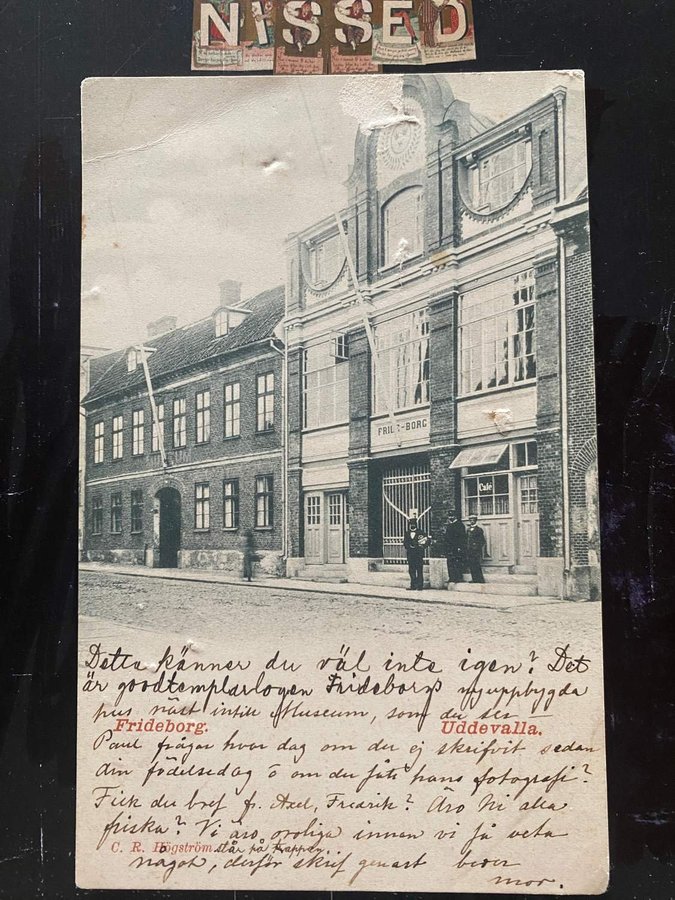 NISSED
FRIDE-BORG
Café
Detta känner du väl inte igen? Det
är goodtemplarlogen Frideborgs nyuppbygda
hus näst intill Museum, som du ser —
Frideborg. Uddevalla.
Paul frågar hvar dag om du ej skrifvit sedan
din födelsedag o om du fått hans fotografi?
Fick du bref fr. Axel, Fredrik? Äro Ni alla
friska? Vi äro oroliga innan vi få veta
C. R. Högström står på trappan.
något, derför skrif genast beder
mor.